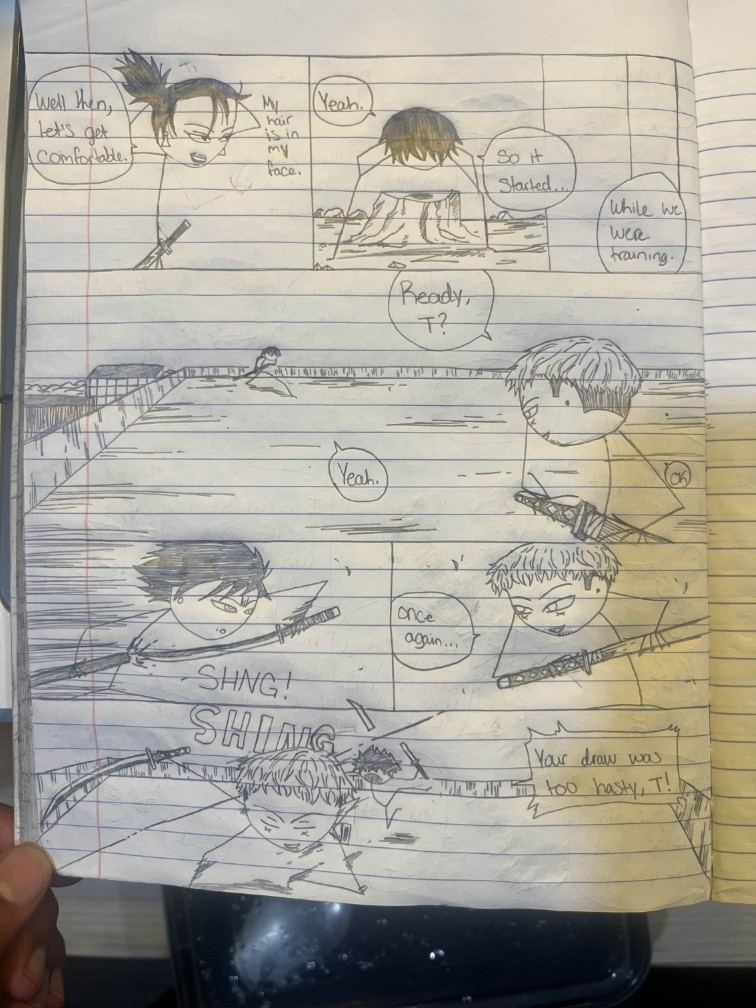 Well then,
let's get
comfortable.
My
hair
is in
my
face.
Yeah.
So it
started...
While we
were
training.
Ready,
T?
Yeah.
Ok
SHNG!
Once
again...
SHING
Your draw was
too hasty, T!